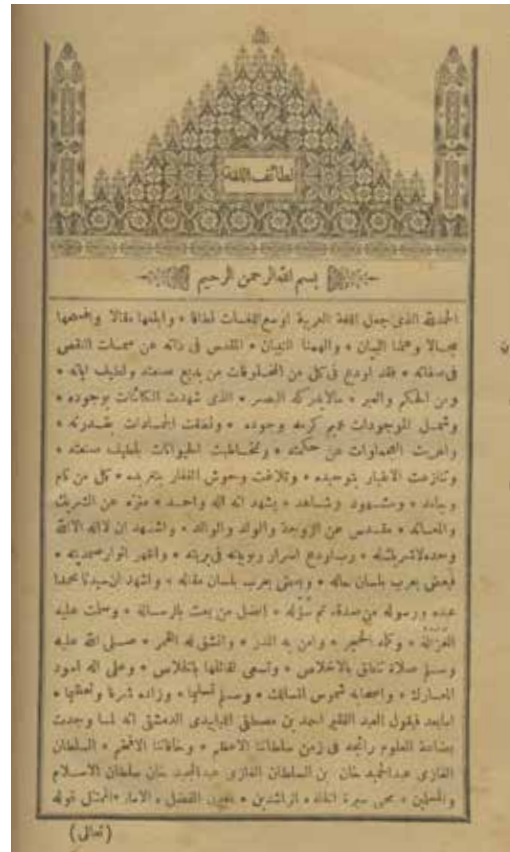 لطائف اللغة
بسم الله الرحمن الرحيم
الحمد لله الذى جعل اللغة العربية اوسع اللغات نطاقا * وابلغها مقالا
مجالا وعلمنا البيان * والهمنا التبيان * المقدس فى ذاته عن سمات النقص
فى صفاته * فقد اودع فى كل من المخلوقات من بديع صنعته ولطيف اياته *
ومن الحكم والعبر * مالايدركه البصر * الذى شهدت الكائنات بوجوده *
وشمل الموجودات عميم كرمه وجوده * ونطقت الجمادات بقدرته *
واعربت العجماوات عن حكمته * وتخاطبت الحيوانات بلطيف صنعته *
وتناغت الاطيار بتوحيده * وتلاغت وحوش القفار بتغريده * كل من نام
* ومشهود وشاهد * يشهد انه اله واحد * منزه عن الشريك
* مقدس عن الزوجة والولد والوالد * واشهد ان لااله الاالله
وحده لاشريك له * رب اودع اسرار ربوبيته فى بريته * واظهر انوار صمديته *
فبعض يعرب بلسان حاله * وبعض يعرب بلسان مقاله * واشهد ان سيدنا محمدا
عبده ورسوله من صدقه تم سؤله * افضل من بعث بالرسالة * وسلمت عليه
الغزالة * وكله الحجر * وامن به المدر * وانشق له القمر * صلى الله عليه
وسلم صلاة تناغى بالاخلاص * وتسعى لقائلها بالخلاص * وعلى اله اسود
المعارك * واصحابه شموس المسالك * وسلم تسليما * وزاده شرفا وتعظيما *
امابعد فيقول العبد الفقير احمد بن مصطفى اللبابيدى الدمشقى انه لما وجدت
بضاعة العلوم رائجه فى زمن سلطاننا الاعظم * وخاقاننا الافخم * السلطان
الغازى عبدالحميد خان بن السلطان الغازى عبدالمجيد خان سلطان الاسلام
والمسلمين * محى سيرة الخلفاء الراشدين * الفضل * قوله
(تعالى)